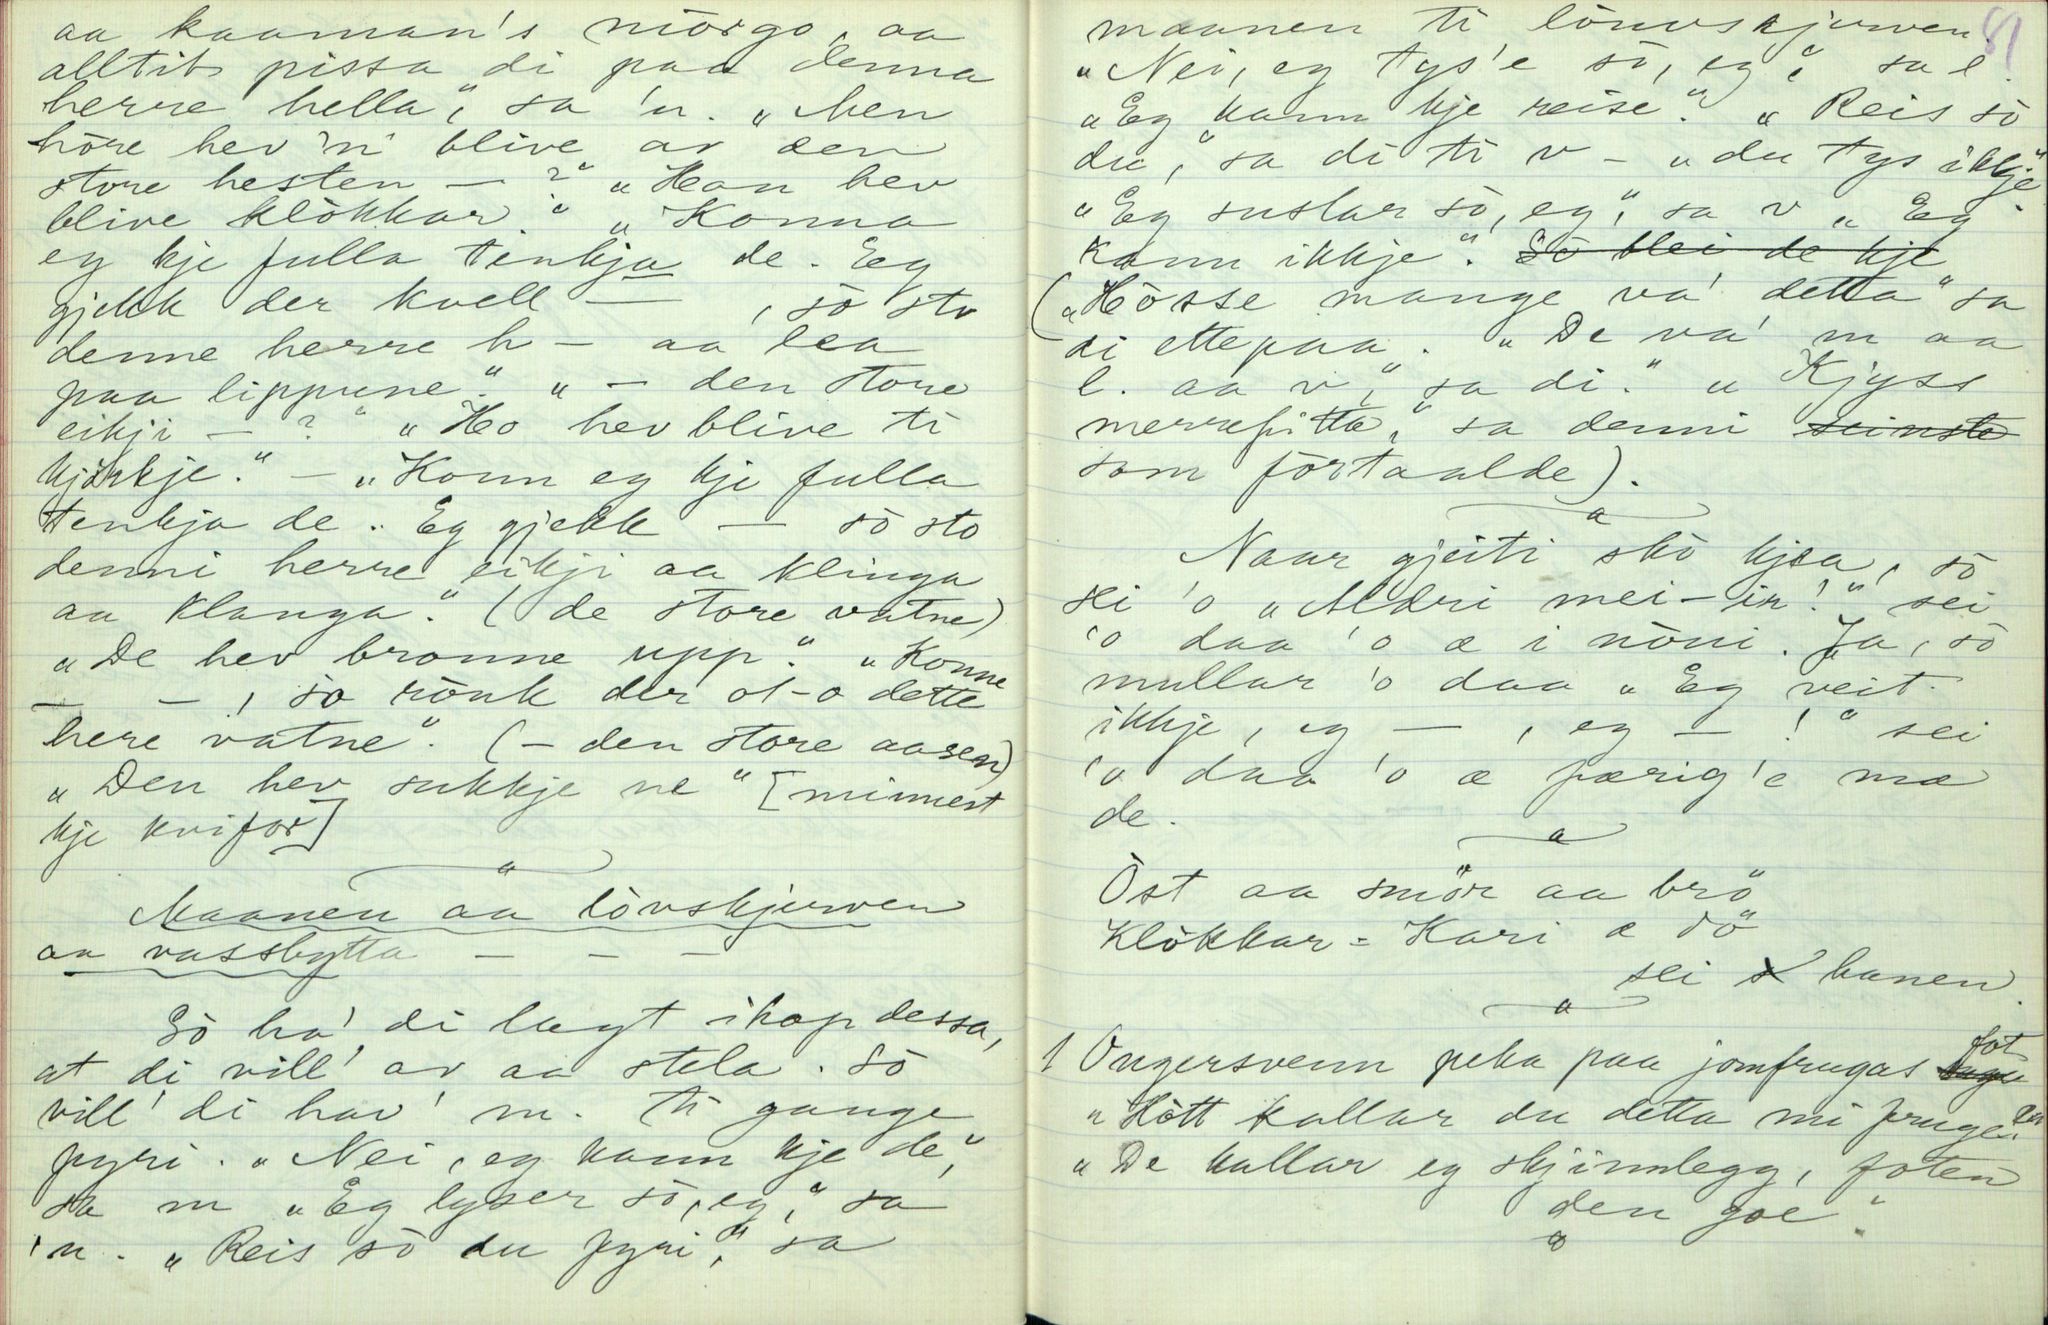 aa kaaman's mòrgo, aa
alltit pissa di paa denna
herre hella", sa 'n. „Men
hòre hev 'n blive av den
store hesten — ?" „Han hev
blive klòkkar." „Konna
eg kje fulla tenkja de. Eg
gjekk der kvell — , sò sto
denne herre h — aa lea
paa lippune." „— den store
eikji — ?" „Ho hev blive ti
kjörkje." — „Konn eg kje fulla
tenkja de. Eg gjekk — sò sto
denni herre eikji aa klinga
aa klanga." (de store vatne)
„De hev bronne upp." „Konne
— — , so rònk der ot-o dette
here vatne". (— den store aasen)
„Den hev sukkje ne" [minnest
kje kvifor]
Maanen aa lòvskjerven
aa vassbytta — — —
Sò ha' di lagt ihop dessa,
at di vill' av aa stela. Sò
vill' di hav' m. ti gange
fyri. „Nei, eg kann kje de,"
sa m „Eg lyser sò, eg," sa
'n. „Reis sò du fyri," sa
81
maanen ti lòuvskjerven.
„Nei, eg tys'e sò, eg," sa l.
„Eg kann kje reise." „Reis sò
du," sa di ti v — „du tys ikkje".
„Eg suslar sò, eg," sa v „Eg
kann ikkje". Sò blei de kje
(„Hòsse mange va' detta" sa
di ettepaa. „De va' m aa
l. aa v," sa di." „Kjyss
merrefitta," sa denni seinste
som fòrtaalde).
Naar gjeiti skò kjea, sò
sei 'o „Aldri mei-ir!" sei
'o daa 'o æ i nòni. Ja, sò
mullar 'o daa „Eg veit
ikkje, eg — , eg — !" sei
'o daa 'o æ færig'e mæ
de.
Òst aa smör aa brö
Klòkkar-Kari æ dö
sei hanen.
1 Ongersvenn peka paa jomfrugas fot
„Hòtt kallar du detta mi fruge
„De kallar eg skjinnlegg, foten
den goe".